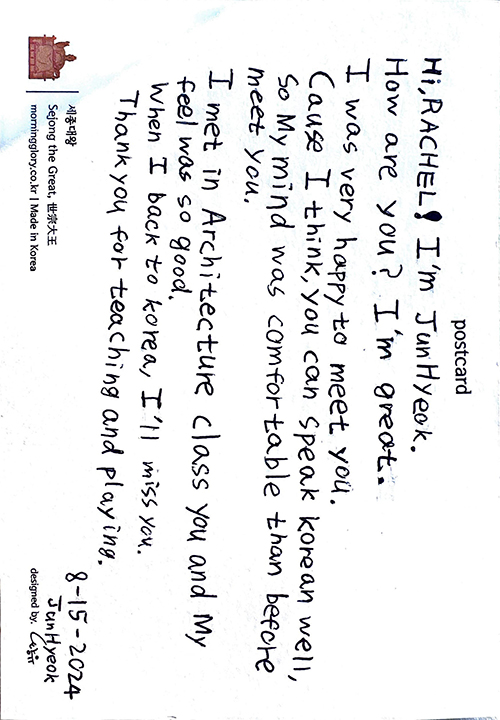 postcard
Hi, RACHEL! I'm JunHyeok.
How are you? I'm great.
I was very happy to meet you.
Cause I think, you can speak korean well,
So My mind was comfortable than before
meet you.
I met in Architecture class you and My
feel was so good.
When I back to korea, I'll miss you.
Thank you for teaching and playing.
8-15-2024
JunHyeok
세종대왕
Sejong the Great, 世宗大王
morningglory.co.kr | Made in Korea
designed by.